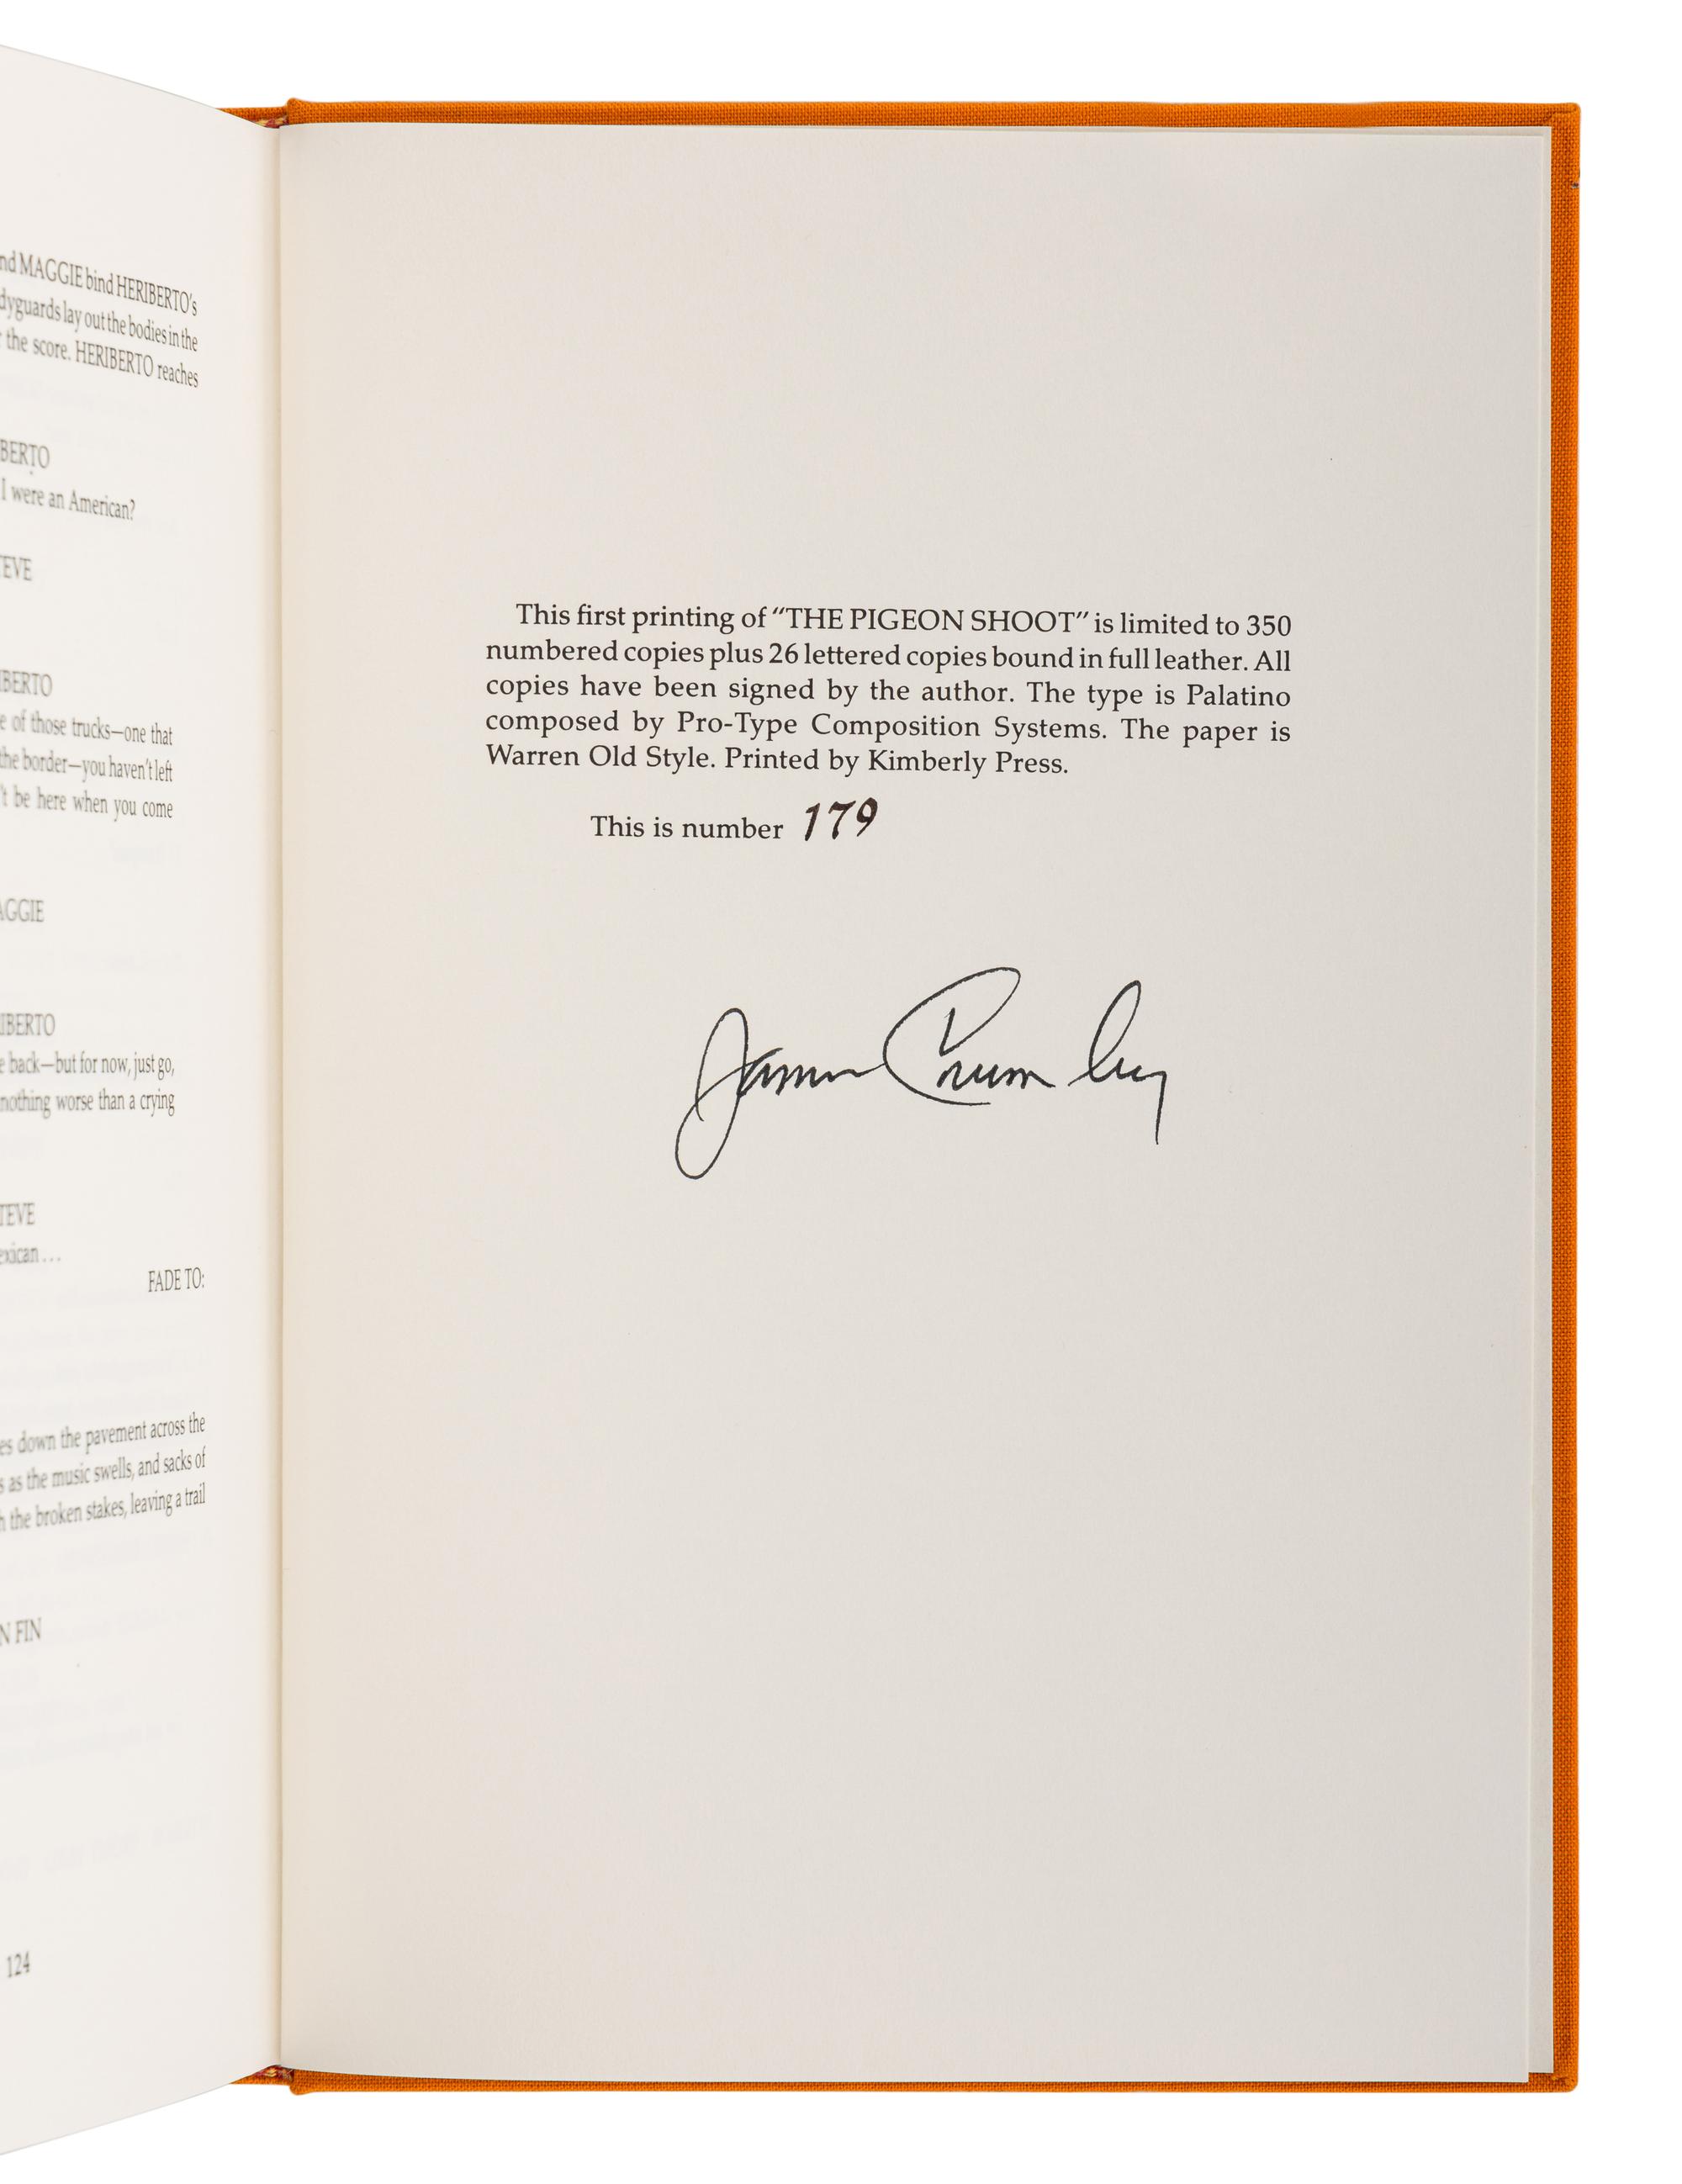 nd MAGGIE bind HERIBERTO's
dyguards lay out the bodies in the
the score. HERIBERTO reaches
BERTO
I were an American?
TEVE
IBERTO
e of those trucks—one that
the border—you haven't left
't be here when you come
AGGIE
IBERTO
e back—but for now, just go,
nothing worse than a crying
TEVE
exican . . .
FADE TO:
es down the pavement across the
s as the music swells, and sacks of
h the broken stakes, leaving a trail
N FIN
124
This first printing of "THE PIGEON SHOOT" is limited to 350
numbered copies plus 26 lettered copies bound in full leather. All
copies have been signed by the author. The type is Palatino
composed by Pro-Type Composition Systems. The paper is
Warren Old Style. Printed by Kimberly Press.
This is number 179
James Crumley